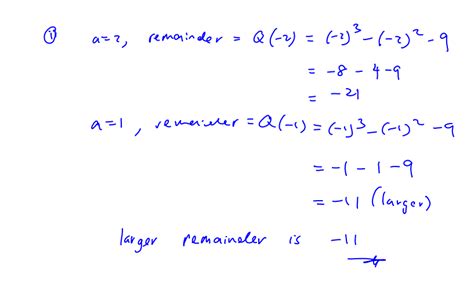 ① a=2, remainder = Q(-2) = (-2)³ - (-2)² - 9
= -8 - 4 - 9
= -21
a=1, remainder = Q(-1) = (-1)³ - (-1)² - 9
= -1 - 1 - 9
= -11 (larger)
larger remainder is -11